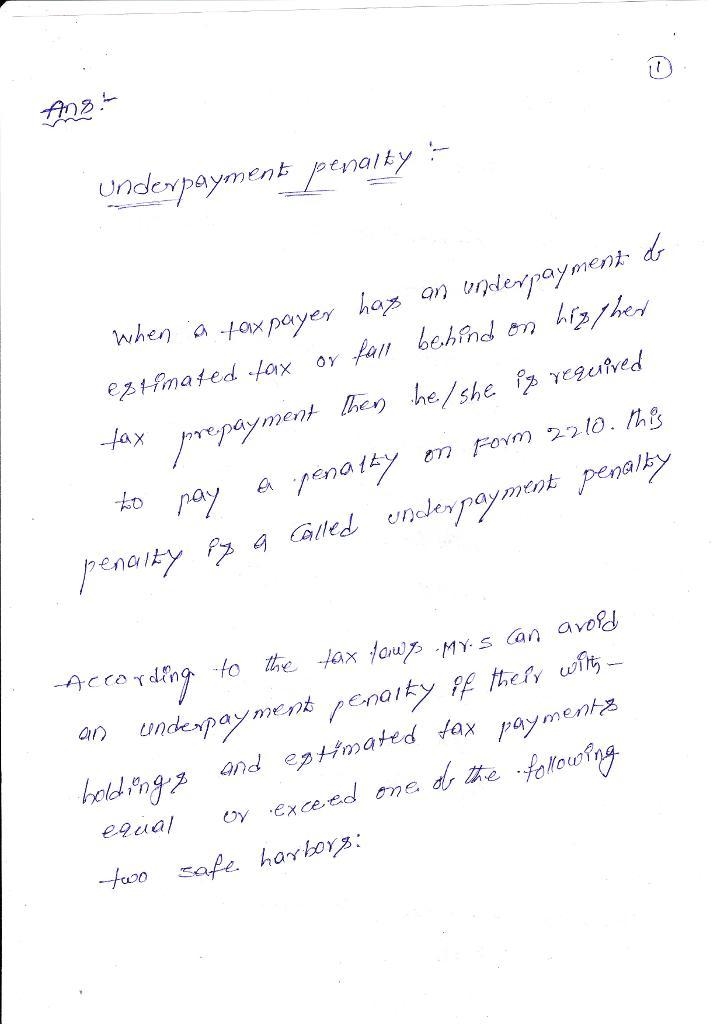 1
Ans:-
Underpayment penalty :-
When a taxpayer has an underpayment of
estimated tax or fall behind on his/her
tax prepayment then he/she is required
to pay a penalty on Form 2210. This
penalty is a called underpayment penalty
According to the tax laws Mr. S can avoid
an underpayment penalty if their with-
holdings and estimated tax payments
equal or exceed one of the following
two safe harbors: